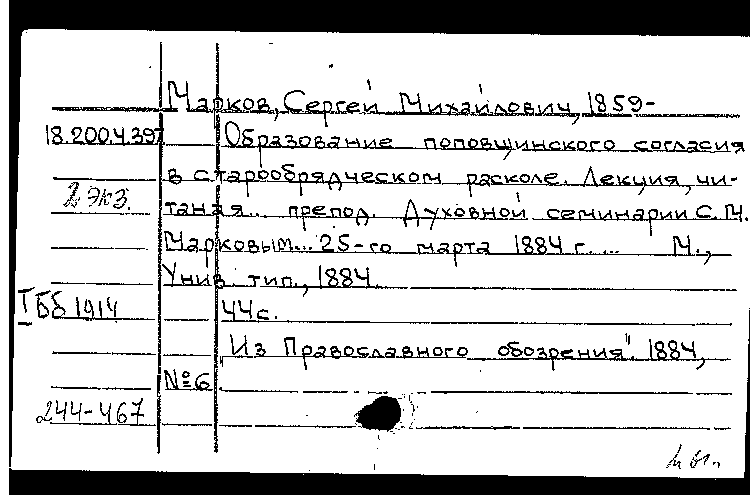 Марков, Сергей Михайлович, 1859-
18.200.4.397
Образование поповщинского согласия
в старообрядческом расколе. Лекция, чи-
2 экз.
танная... препод. Духовной семинарии С. М.
Марковым... 25-го марта 1884 г. ... М.,
Унив. тип., 1884.
I Бб 1914
44 с.
"Из Православного обозрения". 1884,
№6
244-467